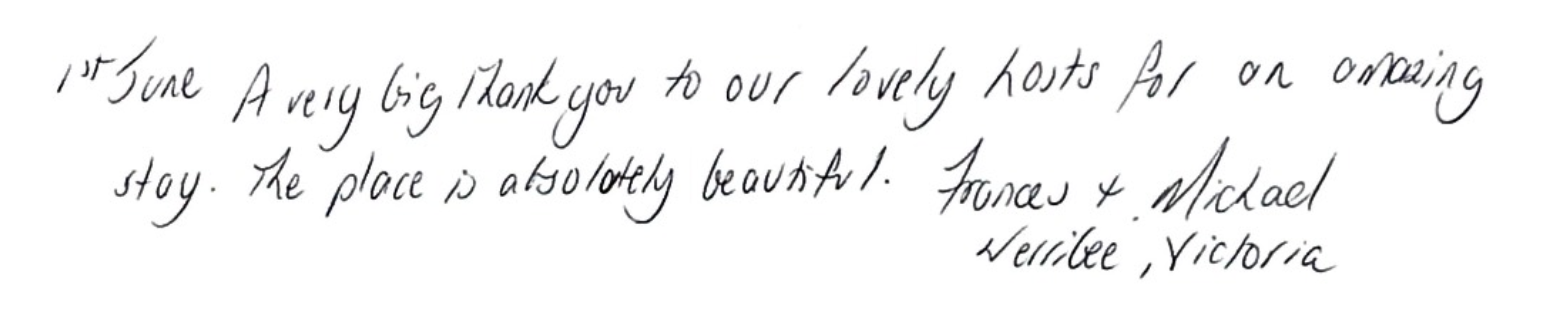 1st June A very big thank you to our lovely hosts for an amazing
stay. The place is absolutely beautiful. Frances + Michael
Werribee, Victoria